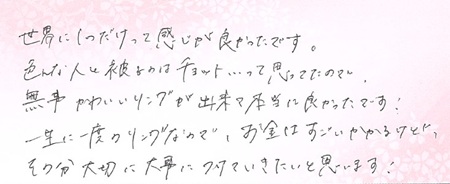 世界に1つだけって感じが良かったです。
色んな人と被るのはチョット…って思ってたので、
無事かわいいリングが出来て本当に良かったです!
一生に一度のリングなので、お金はすごいかかるけど、
その分大切に大事につけていきたいと思います!